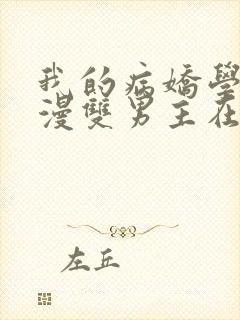 我的病嬌學
漫雙男主在
左丘